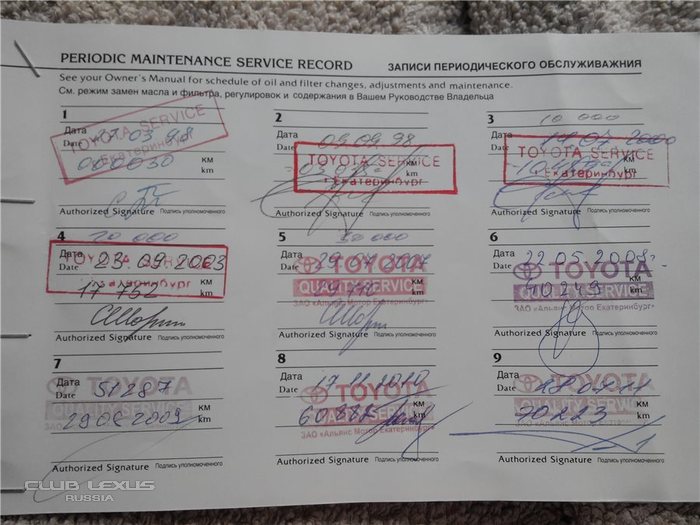 PERIODIC MAINTENANCE SERVICE RECORD ЗАПИСИ ПЕРИОДИЧЕСКОГО ОБСЛУЖИВАЖНИЯ
See your Owner's Manual for schedule of oil and filter changes, adjustments and maintenance.
См. режим замен масла и фильтра, регулировок и содержания в Вашем Руководстве Владельца
1
Дата
Date 27.03.98
TOYOTA SERVICE
Екатеринбург
000030 км
km
Authorized Signature Подпись уполномоченного
2
Дата
Date 09.09.98
TOYOTA SERVICE
Екатеринбург
км
km
Authorized Signature Подпись уполномоченного
3
10 000
Дата
Date 2000
TOYOTA SERVICE
Екатеринбург
км
km
Authorized Signature Подпись уполномоченного
4
20 000
Дата
Date 23.09.2003
TOYOTA SERVICE
Екатеринбург
17 752 км
km
Authorized Signature Подпись уполномоченного
5
Дата
Date 29.07.
TOYOTA
QUALITY SERVICE
ЗАО «Альянс Мотор Екатеринбург»
км
km
Authorized Signature Подпись уполномоченного
6
Дата
Date 22.05.2008
TOYOTA
QUALITY SERVICE
40249 км
km
ЗАО «Альянс Мотор Екатеринбург»
Authorized Signature Подпись уполномоченного
7
Дата
Date 51287
TOYOTA
QUALITY SERVICE
29.08.2009 км
km
ЗАО «Альянс Мотор Екатеринбург»
Authorized Signature Подпись уполномоченного
8
Дата
Date 17.11.2010
TOYOTA
QUALITY SERVICE
км
km
ЗАО «Альянс Мотор Екатеринбург»
Authorized Signature Подпись уполномоченного
9
Дата
Date
TOYOTA
QUALITY SERVICE
70223 км
km
ЗАО «Альянс Мотор Екатеринбург»
Authorized Signature Подпись уполномоченного
CLUB LEXUS
RUSSIA